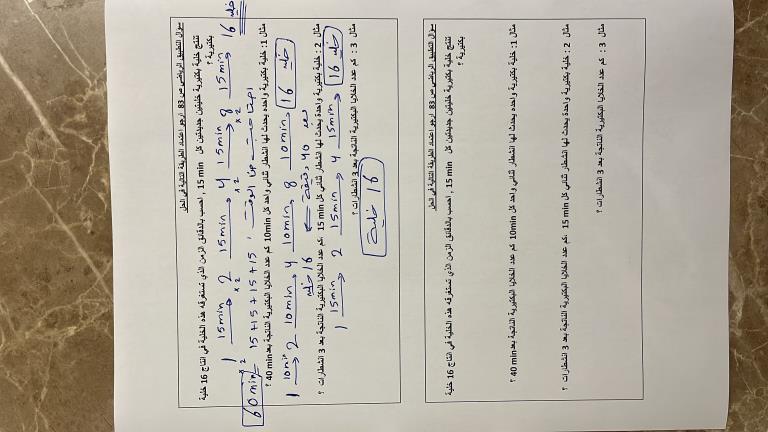 سؤال التطبيق الرياضي ص 83 ارجو اعتماد الطريقة التالية في الحل
تنتج خلية بكتيرية خليتين جديدتين كل 15 min , احسب بالدقائق الزمن الذي تستغرقه هذه الخلية في انتاج 16 خلية
بكتيرية ؟
1 15min 2 15min 4 15min 8 15min 16 خلية
×2 ×2 ×2
60min 15+15+15+15
مثال 1: خلية بكتيرية واحده يحدث لها انشطار ثنائي واحد كل 10min كم عدد الخلايا البكتيرية الناتجة بعد 40 min ؟
1 10min 2 10min 4 10min 8 10min 16 خلية
16 خلية بعد 40 دقيقة
مثال 2 : خلية بكتيرية واحدة يحدث لها انشطار ثنائي كل 15 min كم عدد الخلايا البكتيرية الناتجة بعد 3 انشطارات ؟
1 15min 2 15min 4 15min 16 خلية
مثال 3 : كم عدد الخلايا البكتيرية الناتجة بعد 3 انشطارات ؟
16 خلية
سؤال التطبيق الرياضي ص 83 ارجو اعتماد الطريقة التالية في الحل
تنتج خلية بكتيرية خليتين جديدتين كل 15 min , احسب بالدقائق الزمن الذي تستغرقه هذه الخلية في انتاج 16 خلية
بكتيرية ؟
مثال 1: خلية بكتيرية واحده يحدث لها انشطار ثنائي واحد كل 10min كم عدد الخلايا البكتيرية الناتجة بعد 40 min ؟
مثال 2 : خلية بكتيرية واحدة يحدث لها انشطار ثنائي كل 15 min كم عدد الخلايا البكتيرية الناتجة بعد 3 انشطارات ؟
مثال 3 : كم عدد الخلايا البكتيرية الناتجة بعد 3 انشطارات ؟